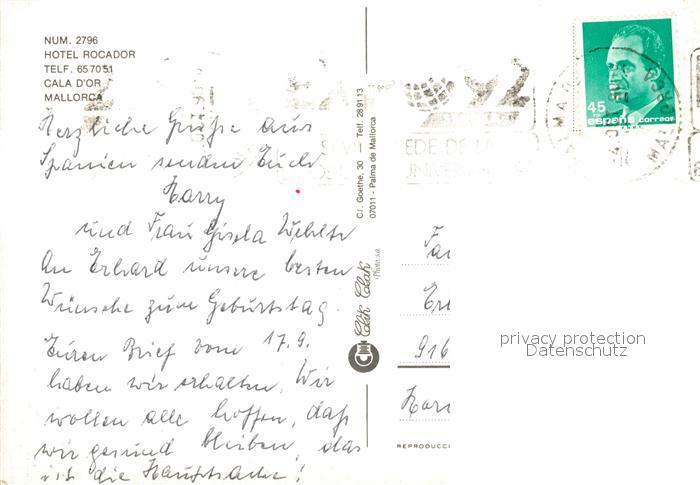 NUM. 2796
HOTEL ROCADOR
TELF. 657051
CALA D'OR
MALLORCA
Herzliche Grüße aus
Spanien senden Euch
Harry
und Frau Gisela
An Erhard unsere besten
Wünsche zum Geburtstag.
Euren Brief vom 17.9.
haben wir erhalten. Wir
wollen alle hoffen, daß
wir gesund bleiben, das
ist die Hauptsache!
C/. Goethe, 30 - Telf. 289113
07011 - Palma de Mallorca
Clik Clak
Photo s.a.
45
PTA
españa correos
SEDE DE LA
UNIVERSAL
Fa
Er
916
REPRODUCCI
privacy protection
Datenschutz